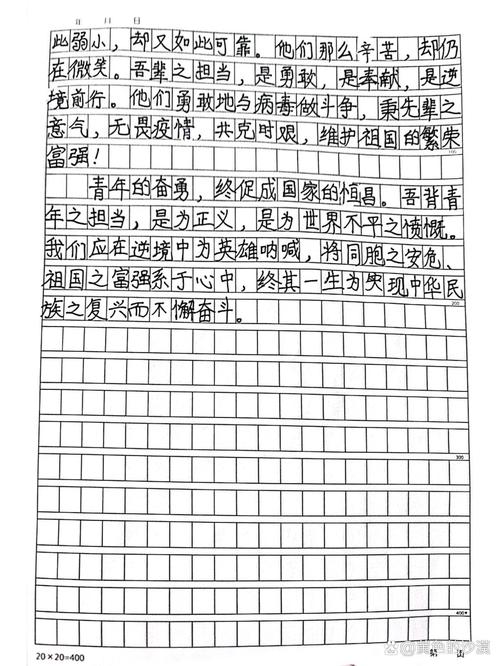 年 月 日
此弱小，却又如此可靠。他们那么辛苦，却仍
在微笑。吾辈之担当，是勇敢，是奉献，是逆
境前行。他们勇敢地与病毒做斗争，秉先辈之
意气，无畏疫情，共克时艰，维护祖国的繁荣
富强！
100
青年的奋勇，终促成国家的恒昌。吾背青
年之担当，是为正义，是为世界不平之愤慨。
我们应在逆境中为英雄呐喊，将同胞之安危、
祖国之富强系于心中，终其一生为实现中华民
200
族之复兴而不懈奋斗。
300
400
20×20=400
第 页